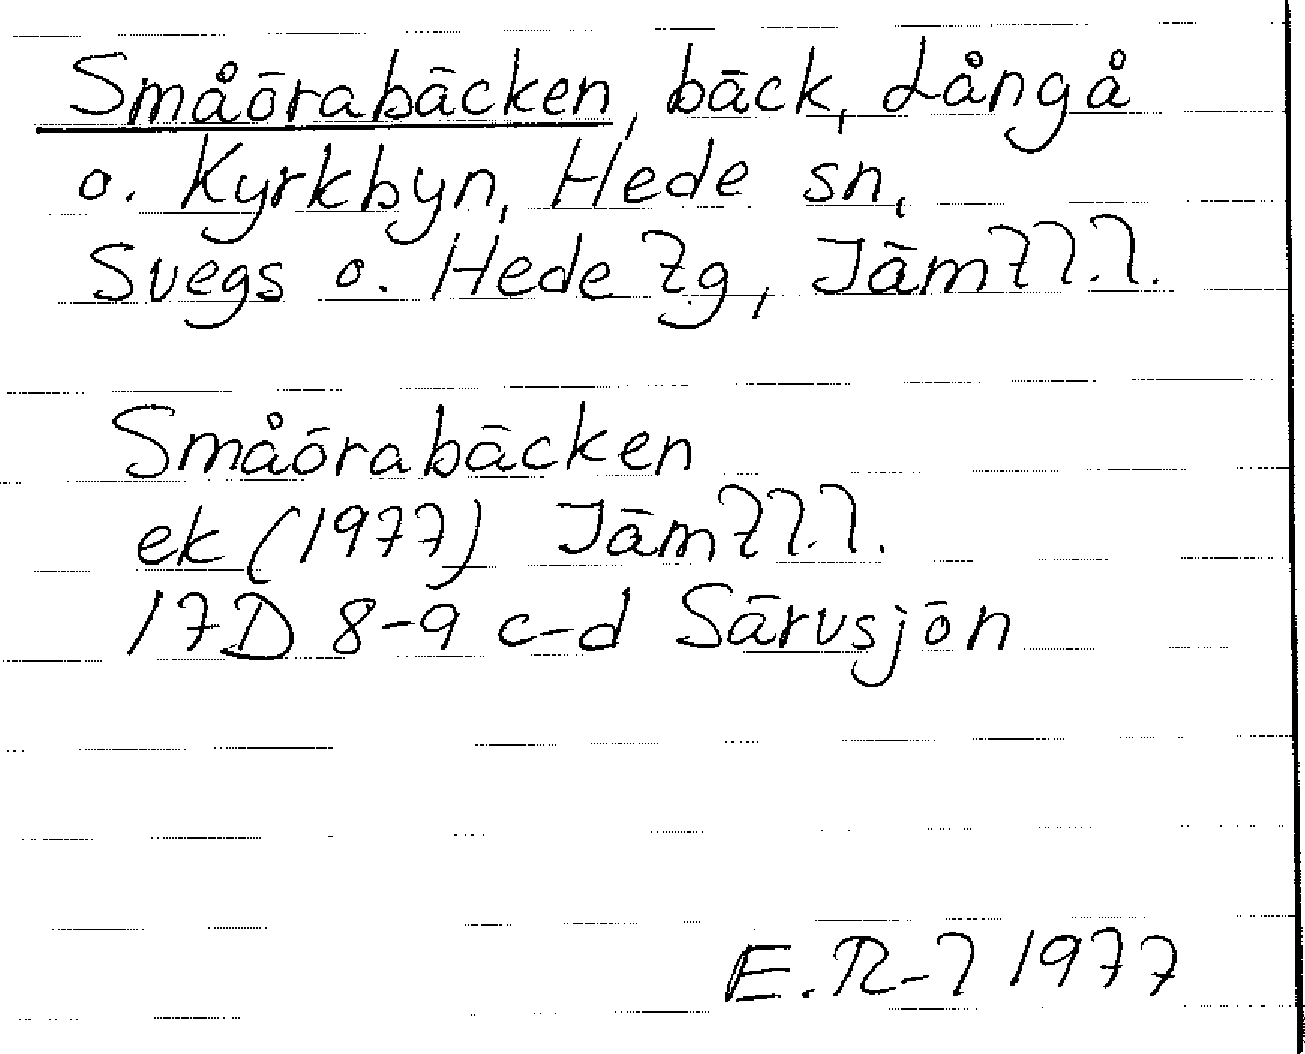 Småörabäcken, bäck, Långå
o. Kyrkbyn, Hede sn,
Svegs o. Hede tg, Jämtl.l.
Småörabäcken
ek (1977) Jämtl.l.
17D 8-9 c-d Särvsjön
E.R-l 1977